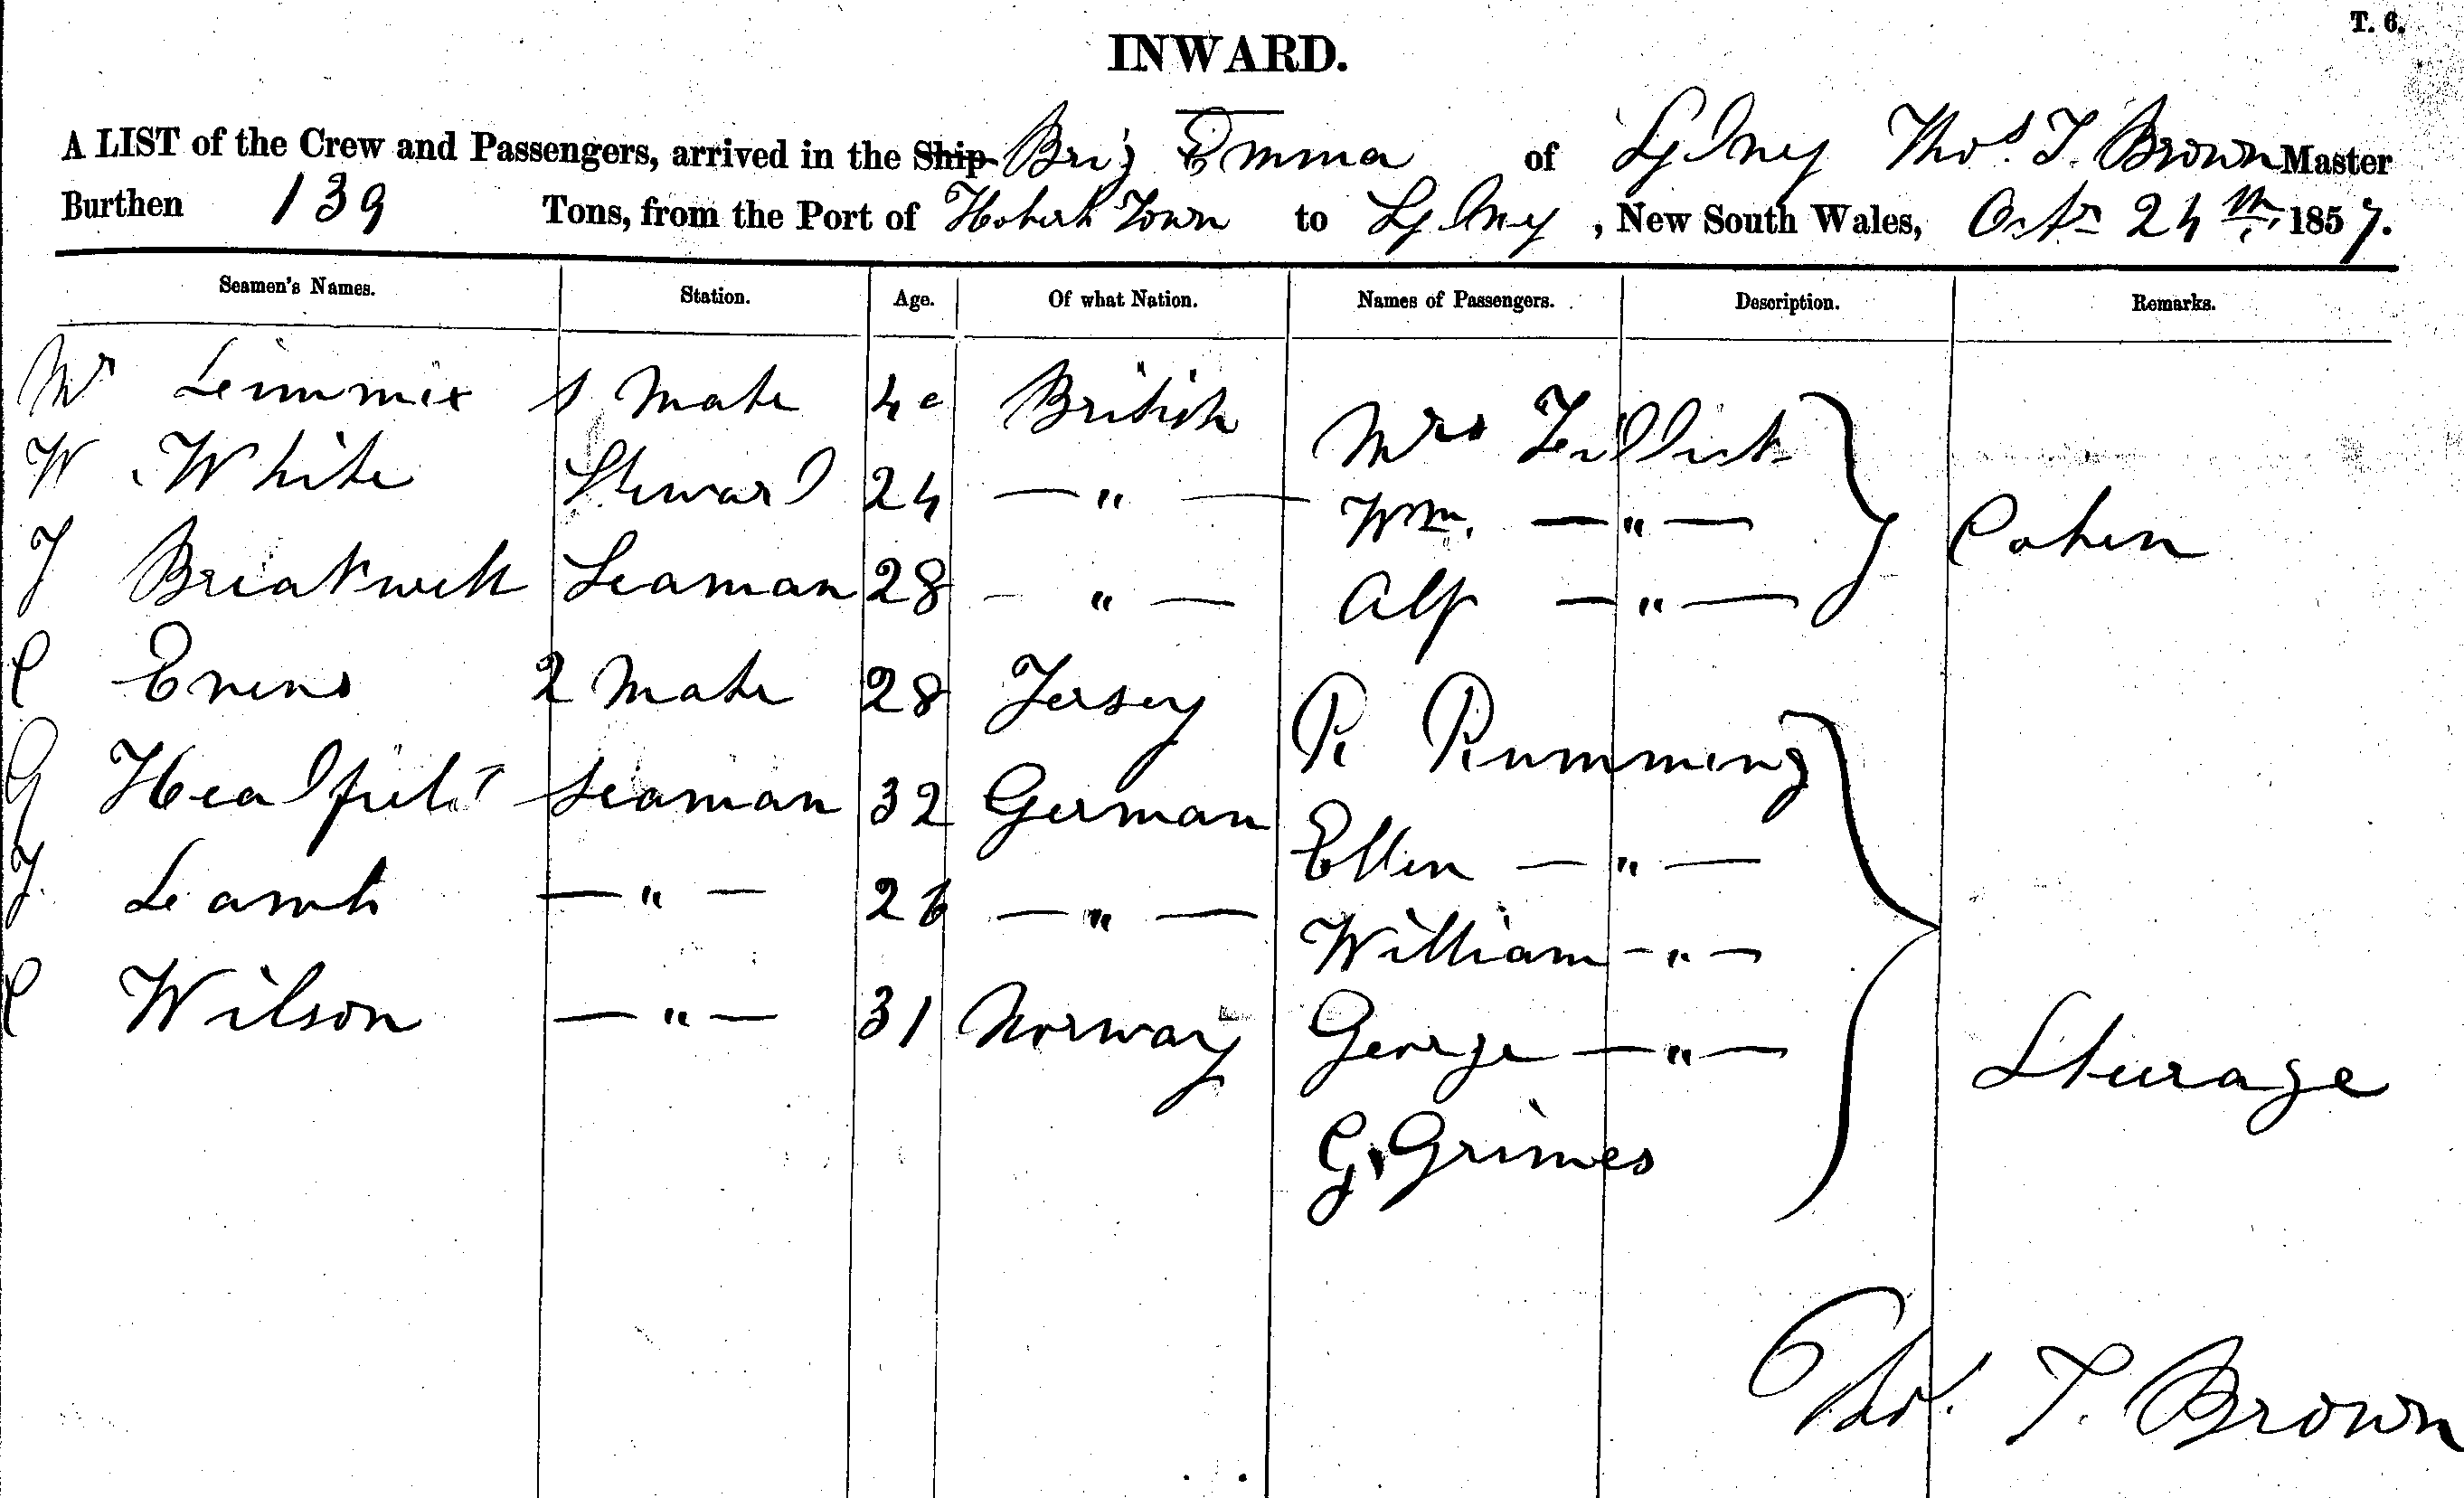 T. 6.
INWARD.
A LIST of the Crew and Passengers, arrived in the Ship Brig Emma of Sydney Thos. T. Brown Master
Burthen 139 Tons, from the Port of Hobart Town to Sydney, New South Wales, Octr 24th, 1857.
Seamen's Names. Station. Age. Of what Nation. Names of Passengers. Description. Remarks.
Mr 1 Mate 40 British Mrs
W White Steward 24 —"— Wm. —"— Cohen
J Breakwell Seaman 28 —"— Alf —"—
C Evens 2 Mate 28 Jersey R Rumming
G Seaman 32 German Ellen —"—
J. —"— 26 —"— William —"—
C Wilson —"— 31 Norway George —"— Sturage
G. Grimes
Thos. T. Brown